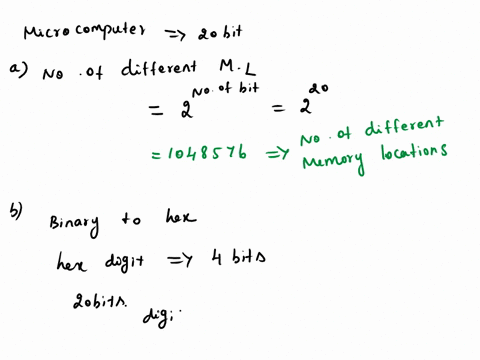 Microcomputer => 20 bit
a) No. of different M.L
= 2^No. of bit = 2^20
= 1048576 => No. of different Memory locations
b) Binary to hex
hex digit => 4 bits
20bits.
digi